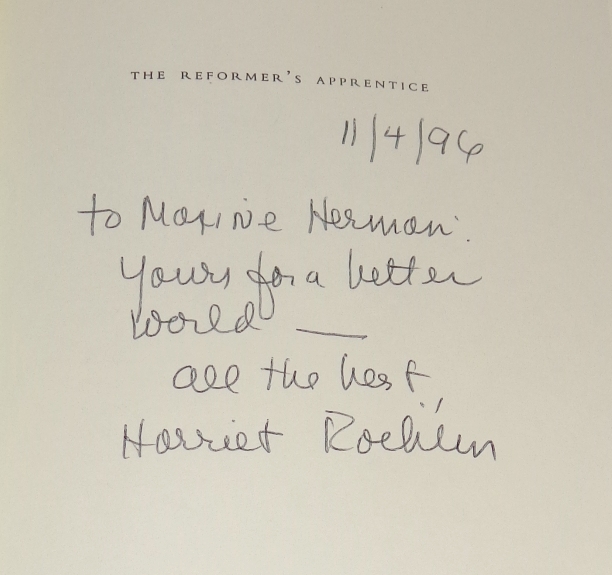 THE REFORMER'S APPRENTICE
11/4/96
to Maxine Herman:
Yours for a better
world —
all the best,
Harriet Rochlin